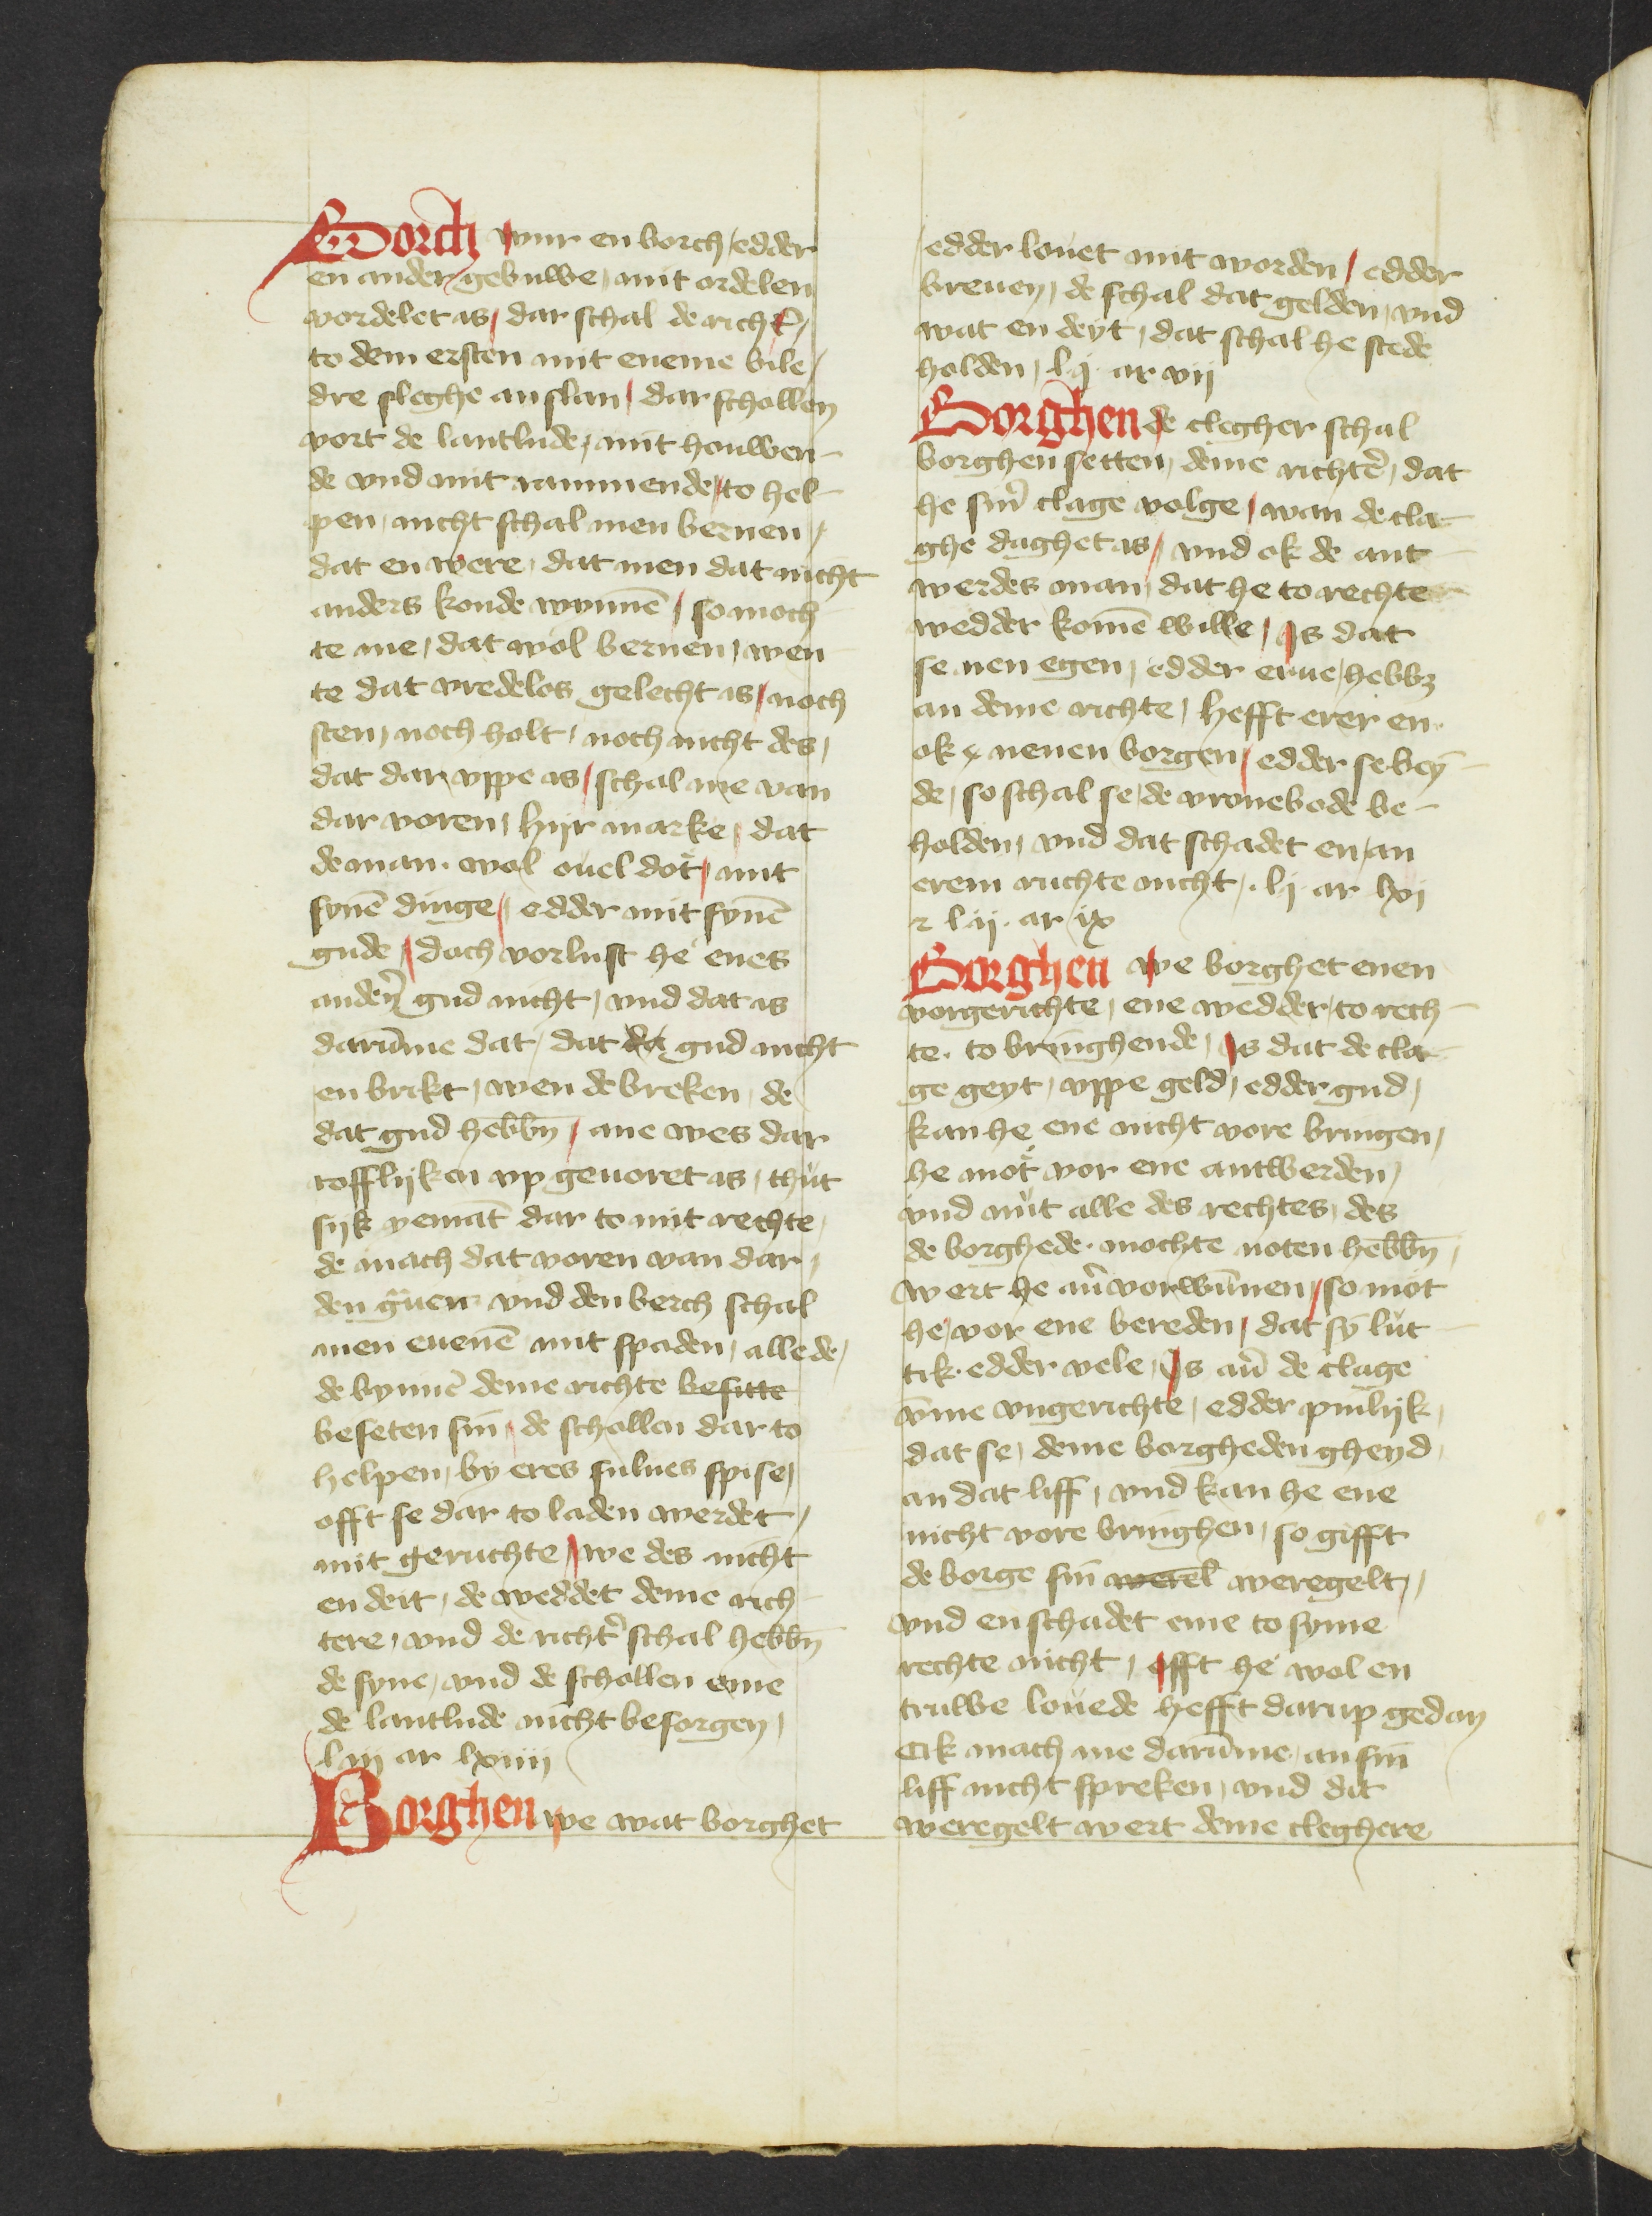 Borch wur en borch / edder
en ander gebuwe / mit ordelen
vordelet is / dar schal de richt̉
to dem ersten mit eneme bile /
dre sleghe an slan / dar schollen
vort de lantlude / mit houwen-
de vnd mit rammende / to hel-
pen / nicht schal men bernen /
dat en were / dat men dat nicht
anders konde wynnē / so moch
te me / dat wol bernen / wen
te dat vredelos gelecht is / noch
sten / noch holt / noch nicht des /
dat dar vppe is / schal me van
dar voren / hijr marke / dat
de man wol ouel dot / mit
synē dinge / edder mit synē
gude / doch vorlust he enes
anderꝭ gud nicht / vnd dat is
darūme dat / dat da gud nicht
en brikt / wen de breken / de
dat gud hebbn̄ / ane wes dar
rofflijken vp geuoret is / thut
sijk yemāt dar to mit rechte /
de mach dat voren van dar /
den grauen vnd den berch schal
men euenē mit spaden / alle de /
de bynnē deme richte besitte
beseten sin̄ / de schollen dar to
helpen / by eres sulues spise /
offt se dar to laden werdet /
mit geruchte / we des nicht
en deit / de weddet deme rich
tere / vnd de richt̉ schal hebbn̄
de syne / vnd de schollen eme
de lantlude nicht besorgen /
l iij ar lxviij
Borghen we wat borghet
edder louet mit worden / edder
breuen / de schal dat gelden / vnd
wat en deyt / dat schal he stede
holden / l j ar vij
Borghen de clegher schal
borghen setten / deme richtẻ / dat
he sin̉ clage volge / wan de cla-
ghe daghet is / vnd ok de ant
werdes man / dat he to rechte
wedder komē wille / Is dat
se nen egen / edder erue / hebbꝫ
an deme richte / hefft erer en
ok nenen borgen / edder se bey-
de / so schal se / de vronebode be-
holden / vnd dat schadet en / an
erem richte nicht / l j ar lxj
⁊ l ij ar ix
Borghen we borghet enen
vorgerichte / ene wedder / to rech-
te to bringhende / Is dat de cla
ge geyt / vppe geld / edder gud /
kan he ene nicht vore bringen /
he mot vor ene antwerden /
vnd mut alle des rechtes / des
de borghede mochte noten hebbn̄ /
wert he aū vorwūnen / so mot
he / vor ene bereden / dat sy lut
tik edder vele / Is aū de clage
v̄me vngerichte / edder pinlijk
dat se / deme borgheden gheyd
an dat liff / vnd kan he ene
nicht vore bringhen / so gifft
de borge sin̄ werel weregelt /
vnd en schadet eme to syme
rechte nicht / offt he wol en
truwe louede hefft darup gedan
Ok mach me darūme an sin̄
liff nicht spreken / vnd dit
weregelt wert deme cleghere